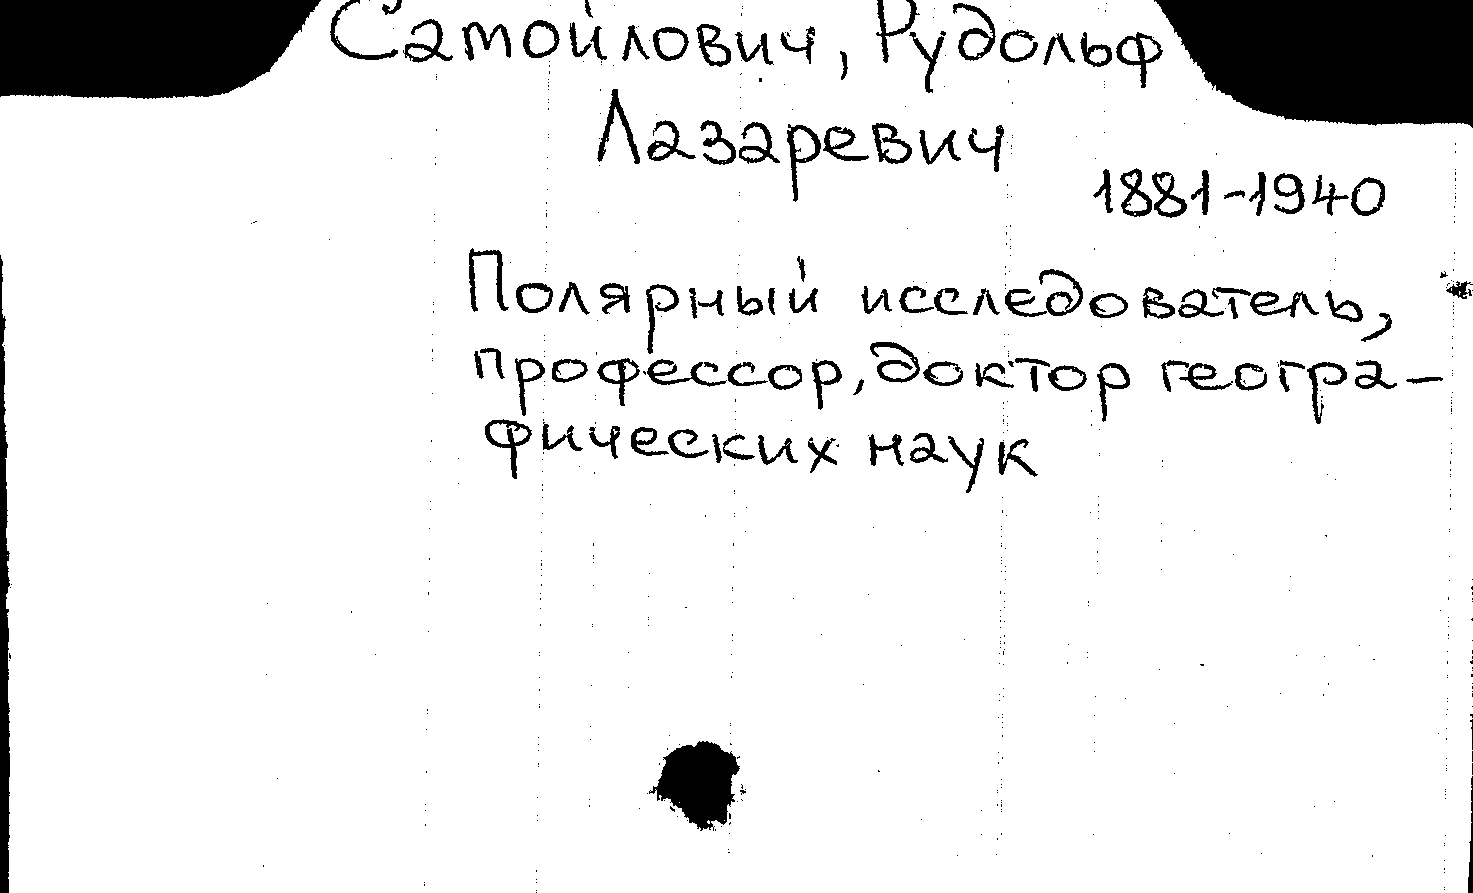 Самойлович, Рудольф
Лазаревич
1881-1940
Полярный исследователь,
профессор, доктор геогра-
фических наук